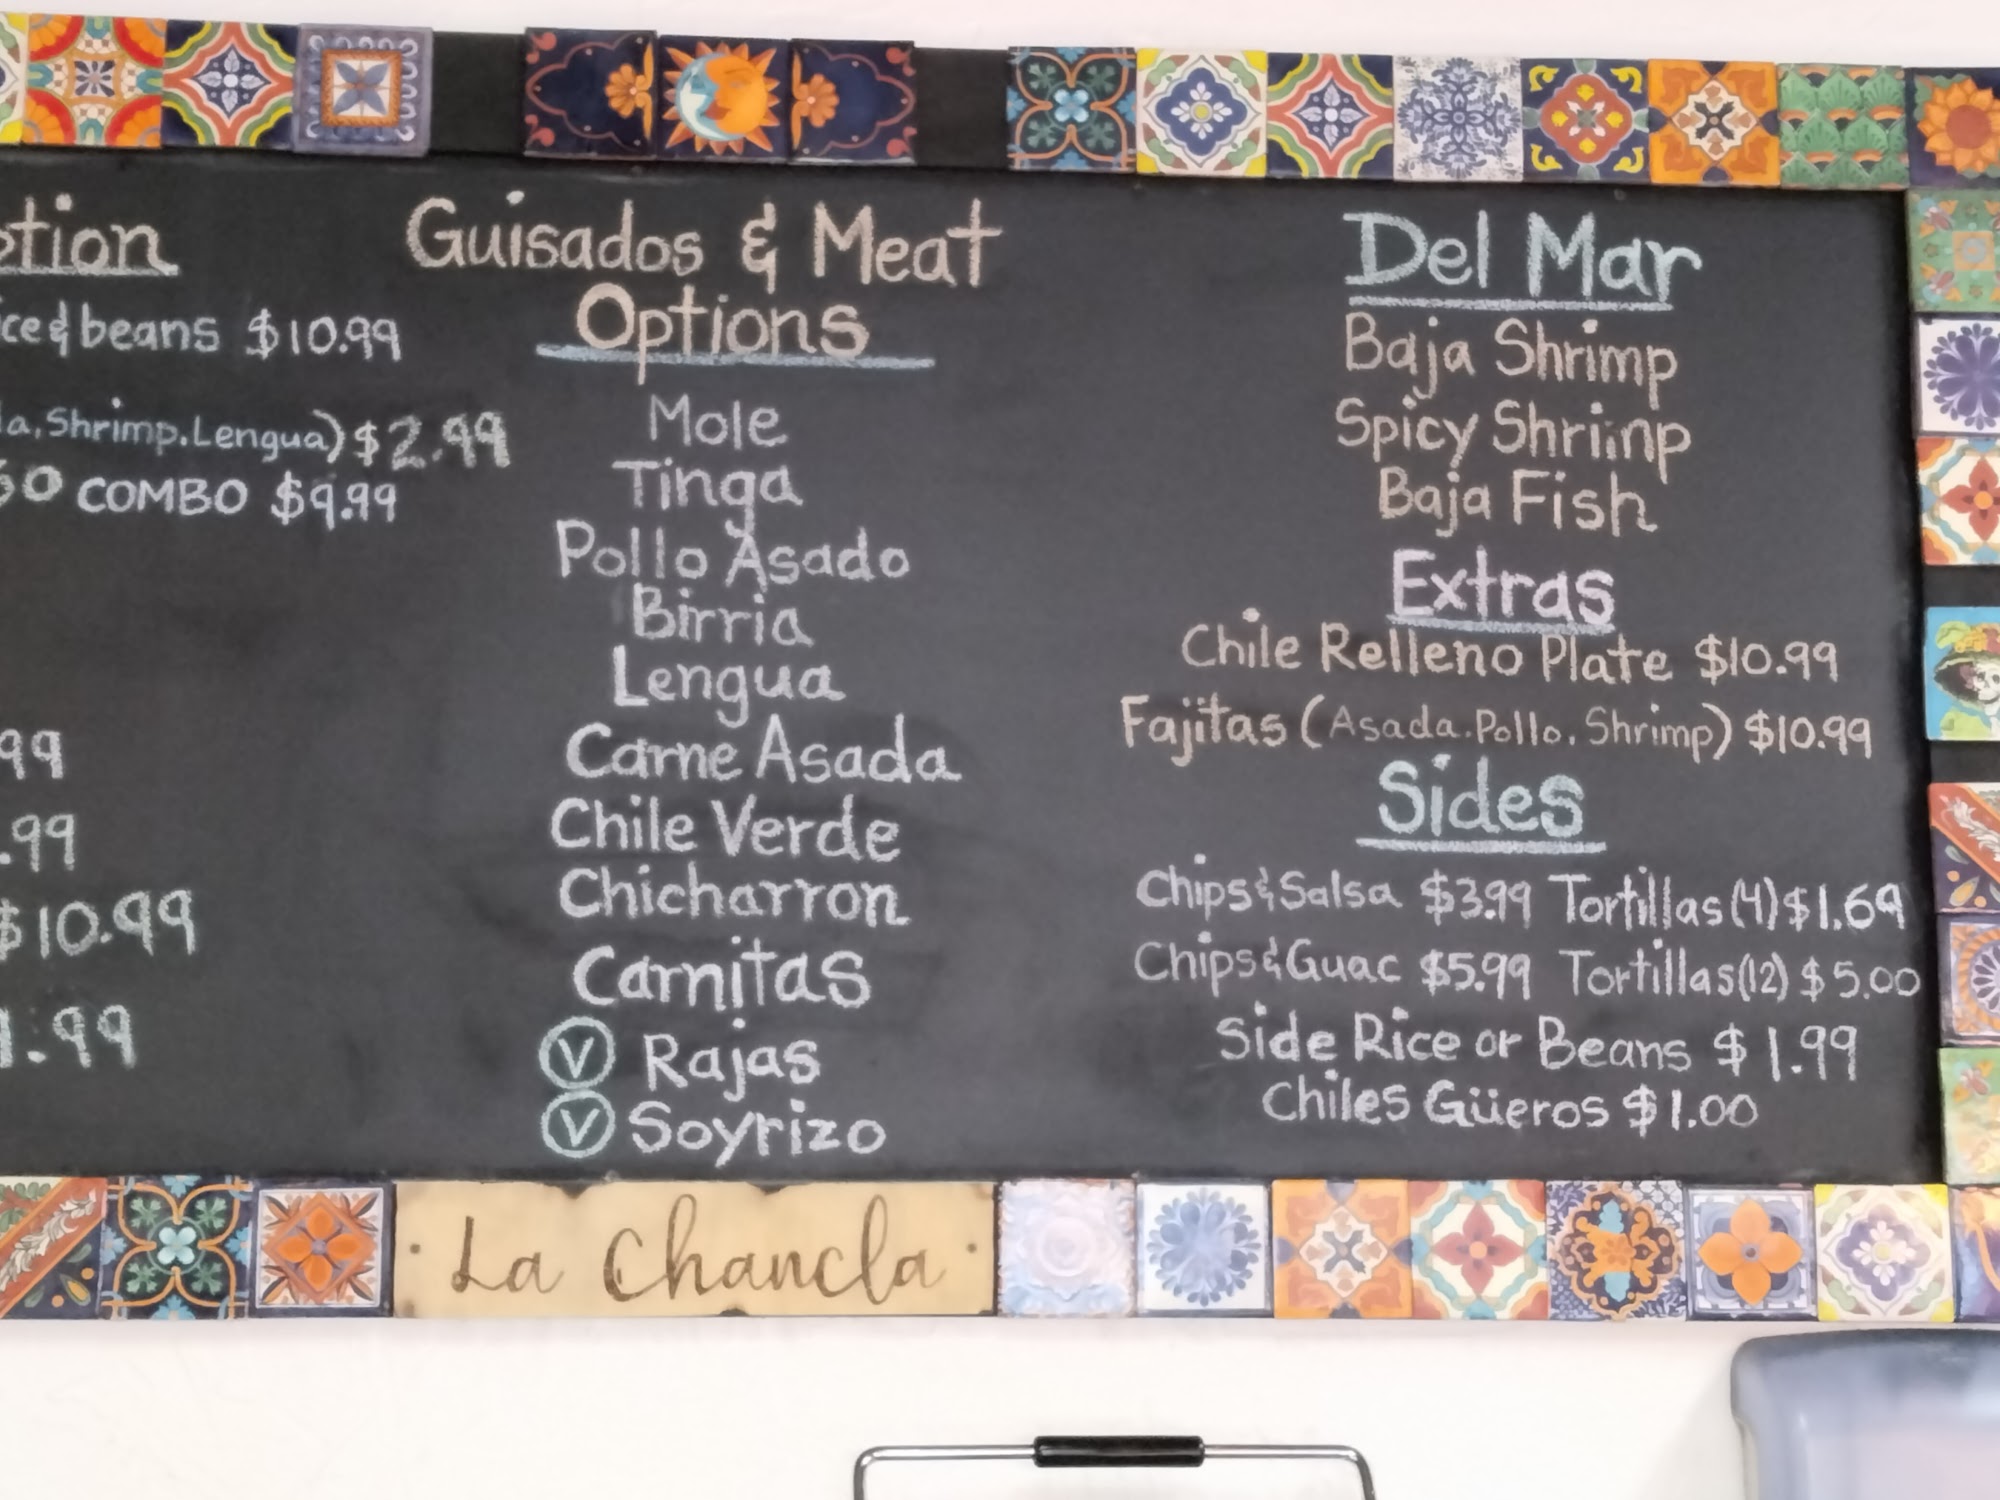 Guisados & Meat
Options
Mole
Tinga
Pollo Asado
Birria
Lengua
Carne Asada
Chile Verde
Chicharron
Carnitas
V Rajas
V Soyrizo
Del Mar
Baja Shrimp
Spicy Shrimp
Baja Fish
Extras
Chile Relleno Plate $10.99
Fajitas (Asada.Pollo.Shrimp) $10.99
Sides
Chips & Salsa $3.99 Tortillas (4) $1.69
Chips & Guac $5.99 Tortillas (12) $5.00
Side Rice or Beans $1.99
Chiles Güeros $1.00
& beans $10.99
Shrimp.Lengua) $2.99
COMBO $9.99
.99
$10.99
.99
La Chancla